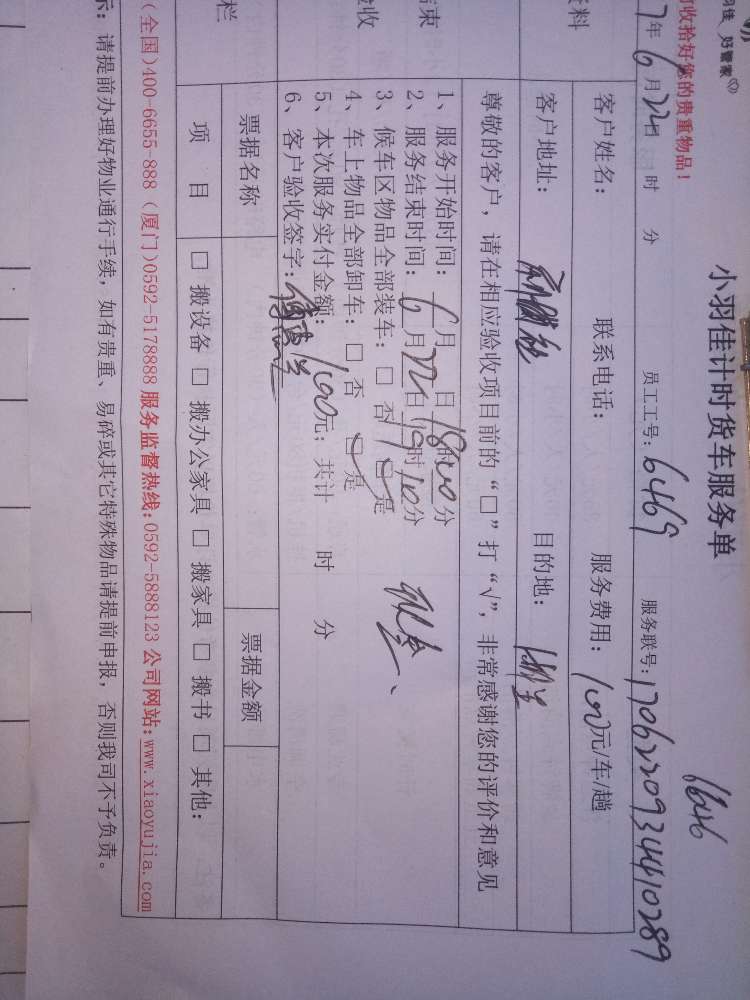 羽佳 好管家
收拾好您的贵重物品!
小羽佳计时货车服务单
1646
7年6月22日 时 分 员工工号: 6469 服务联号: 17062209344410289
资料 客户姓名: 联系电话: 服务费用: 100元/车/趟
客户地址: 目的地:
尊敬的客户, 请在相应验收项目前的“□”打“√”, 非常感谢您的评价和意见
1、服务开始时间: 6月 日18时00分
2、服务结束时间: 6月22日19时10分
3、候车区物品全部装车: □ 否 □是
4、车上物品全部卸车: □ 否 □是
5、本次服务实付金额: 100元; 共计 时 分
6、客户验收签字:
结束
验收
栏 票据名称 票据金额
项 目 □ 搬设备 □ 搬办公家具 □ 搬家具 □ 搬书 □ 其他:
(全国)400-6655-888 (厦门)0592-5178888 服务监督热线:0592-5888123 公司网站:www.xiaoyujia.com
示: 请提前办理好物业通行手续, 如有贵重、易碎或其它特殊物品请提前申报, 否则我司不予负责。